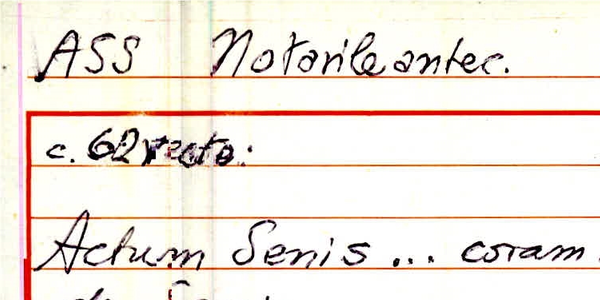 ASS Notarile antec.
c. 62 recto:
Actum Senis ... coram